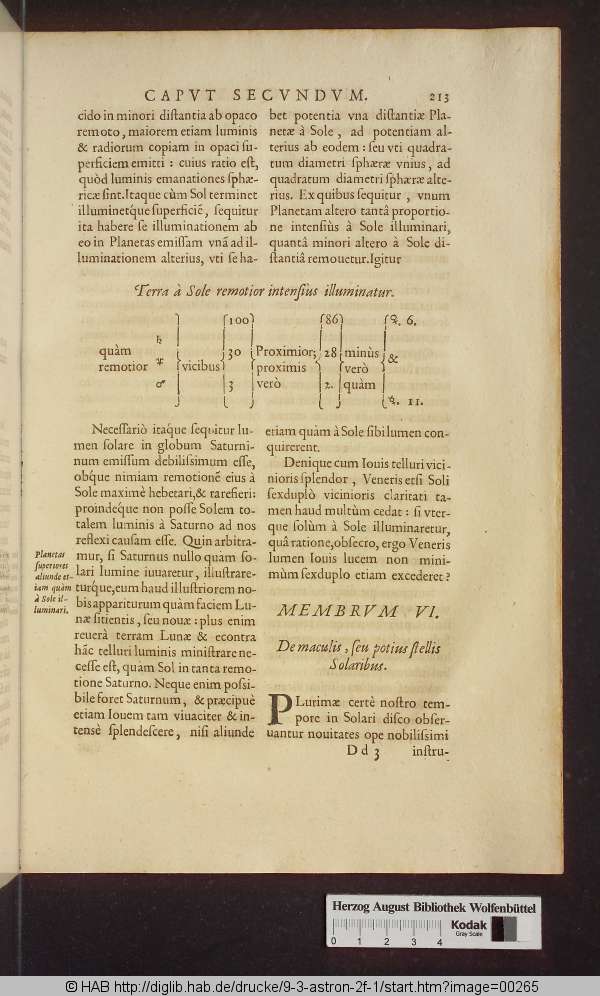 CAPVT SECVNDVM. 213
cido in minori diſtantia ab opaco
remoto, maiorem etiam luminis
& radiorum copiam in opaci ſu-
perficiem emitti: cuius ratio eſt,
quòd luminis emanationes ſphæ-
ricæ ſint. Itaque cùm Sol terminet
illuminetque ſuperficiē, ſequitur
ita habere ſe illuminationem ab
eo in Planetas emiſſam vnā ad il-
luminationem alterius, vti ſe ha-
bet potentia vna diſtantiæ Pla-
netæ à Sole, ad potentiam al-
terius ab eodem: ſeu vti quadra-
tum diametri ſphæræ vnius, ad
quadratum diametri ſphæræ alte-
rius. Ex quibus ſequitur, vnum
Planetam altero tantâ proportio-
ne intenſiùs à Sole illuminari,
quantâ minori altero à Sole di-
ſtantiâ remouetur. Igitur
Terra à Sole remotior intenſius illuminatur.
100 86 ♀. 6.
♄
quàm 30 Proximior; 28 minùs &
remotior ♃ vicibus proximis verò
♂ 3 verò 2. quàm
☿. 11.
Neceſſariò itaque ſequitur lu-
men ſolare in globum Saturni-
num emiſſum debiliſſimum eſſe,
obque nimiam remotionē eius à
Sole maximè hebetari, & rarefieri:
proindeque non poſſe Solem to-
talem luminis à Saturno ad nos
reflexi cauſam eſſe. Quin arbitra-
mur, ſi Saturnus nullo quàm ſo-
lari lumine iuuaretur, illuſtrare-
turque, eum haud illuſtriorem no-
bis appariturum quàm faciem Lu-
næ ſitientis, ſeu nouæ: plus enim
reuerà terram Lunæ & econtra
hāc telluri luminis miniſtrare ne-
ceſſe eſt, quàm Sol in tanta remo-
tione Saturno. Neque enim poſſi-
bile foret Saturnum, & præcipuè
etiam Iouem tam viuaciter & in-
tensè ſplendeſcere, niſi aliunde
Planetas
ſuperiores
aliunde et-
iam quàm
à Sole il-
luminari.
etiam quàm à Sole ſibi lumen con-
quirerent.
Denique cum Iouis telluri vici-
nioris ſplendor, Veneris etſi Soli
ſexduplò vicinioris claritati ta-
men haud multùm cedat: ſi vter-
que ſolùm à Sole illuminaretur,
quâ ratione, obſecro, ergo Veneris
lumen Iouis lucem non mini-
mùm ſexduplo etiam excederet?
MEMBRVM VI.
De maculis, ſeu potius ſtellis
Solaribus.
PLurimæ certè noſtro tem-
pore in Solari diſco obſer-
uantur nouitates ope nobiliſſimi
Dd 3 inſtru-
Herzog August Bibliothek Wolfenbüttel
0 1 2 3 4
Kodak
Gray Scale
© HAB http://diglib.hab.de/drucke/9-3-astron-2f-1/start.htm?image=00265